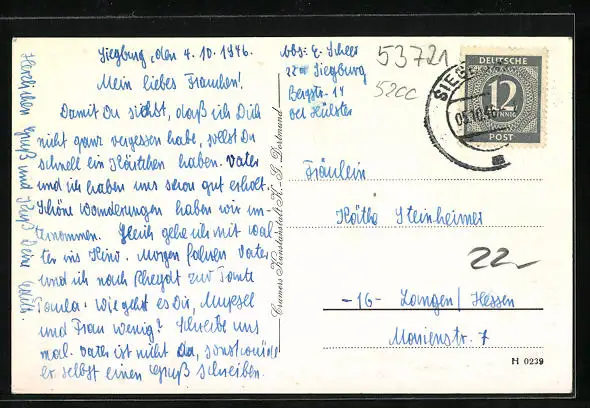 Siegburg, den 4.10.1946.
Mein liebes Frauchen!
Damit Du siehst, daß ich Dich
nicht ganz vergessen habe, sollst Du
schnell ein Kärtchen haben. Vater
und ich haben uns schon gut erholt.
Schöne Wanderungen haben wir un-
ternommen. Gleich gehe ich mit Wal-
ter ins Kino. Morgen fahren Vater
und ich nach Rheydt zur Tante
Paula. Wie geht es Dir, Mupsel
und Frau Wenig? Schreibe uns
mal. Vater ist nicht da, sonst würde
er selbst einen Gruß schreiben.
Herzlichen Gruß und Kuß Deine
Cramers Kunstanstalt K.-G. Dortmund
Abs: E. Scheer
22c Siegburg
Bergstr. 14
bei Hülster
53721
52cc
DEUTSCHE
12
PFENNIG
POST
SIEGBURG
Fräulein
Käthe Steinheimer
22-
-16- Langen/Hessen
Marienstr. 7
H 0239